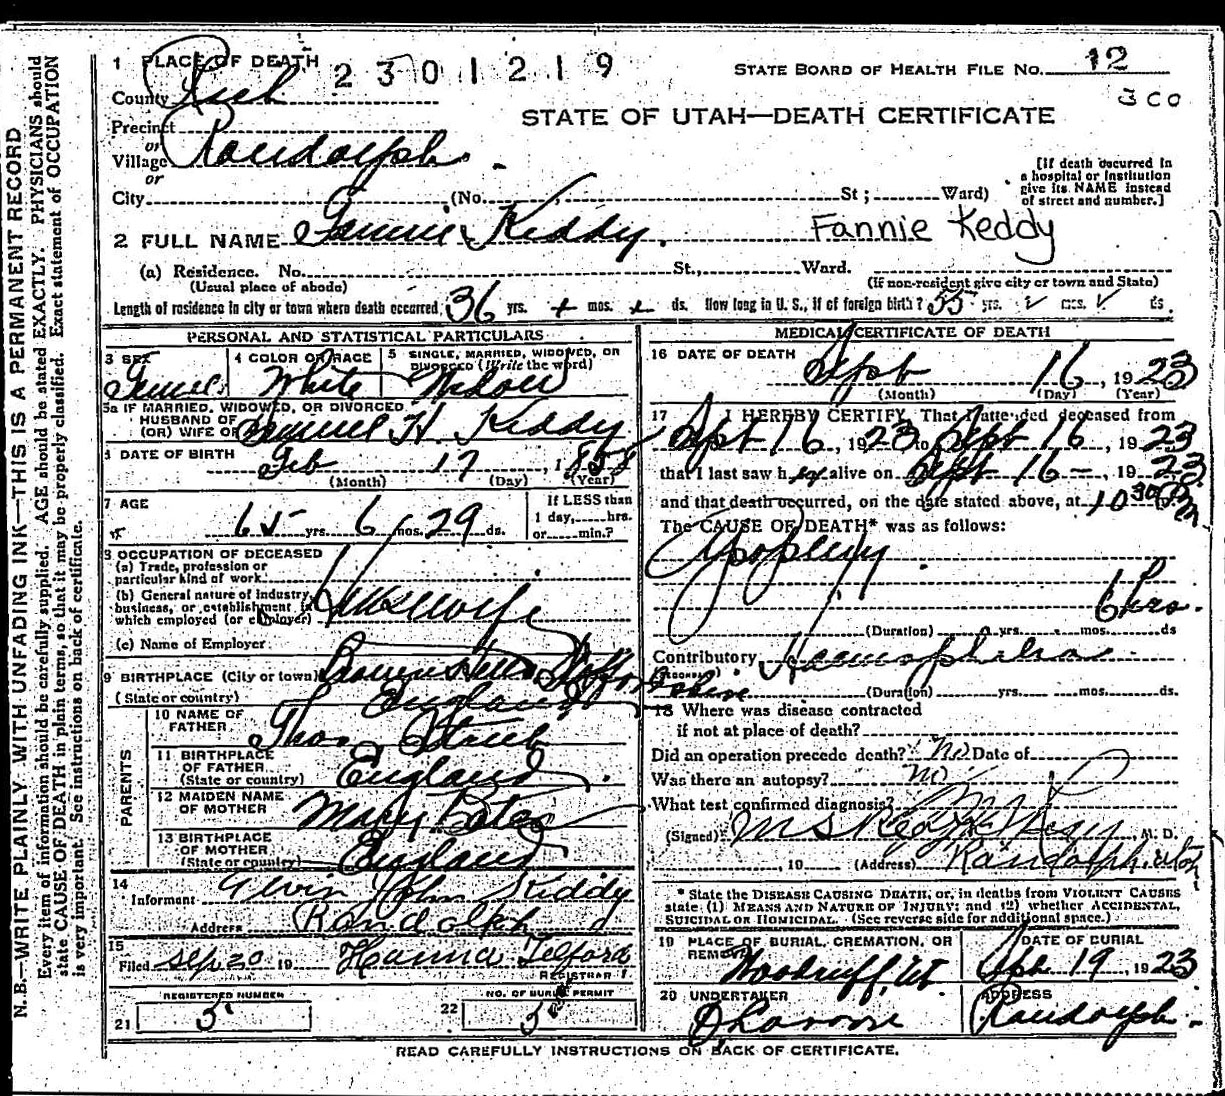 N. B.—WRITE PLAINLY, WITH UNFADING INK—THIS IS A PERMANENT RECORD
Every item of information should be carefully supplied. AGE should be stated EXACTLY. PHYSICIANS should
state CAUSE OF DEATH in plain terms, so that it may be properly classified. Exact statement of OCCUPATION
is very important. See instructions on back of certificate.
1 PLACE OF DEATH 2301219
County Rich
STATE BOARD OF HEALTH FILE No. 12
300
STATE OF UTAH—DEATH CERTIFICATE
Precinct
or
Village Randolph
or
City (No. St; Ward)
[If death occurred in
a hospital or institution
give its NAME instead
of street and number.]
2 FULL NAME Fannie Keddy. Fannie Keddy
(a) Residence. No. St., Ward.
(Usual place of abode) (If non-resident give city or town and State)
Length of residence in city or town where death occurred 36 yrs. mos. ds. How long in U. S., if of foreign birth? 55 yrs. mos. ds.
PERSONAL AND STATISTICAL PARTICULARS
3 SEX 4 COLOR OR RACE 5 SINGLE, MARRIED, WIDOWED, OR
DIVORCED (Write the word)
Female White Widow
5a IF MARRIED, WIDOWED, OR DIVORCED
HUSBAND OF
(OR) WIFE OF Samuel H. Keddy
6 DATE OF BIRTH Feb 17, 1858
(Month) (Day) (Year)
7 AGE 65 yrs. 6 mos. 29 ds.
If LESS than
1 day, hrs.
or min.?
8 OCCUPATION OF DECEASED
(a) Trade, profession or
particular kind of work
(b) General nature of Industry,
business, or establishment in
which employed (or employer) Housewife
(c) Name of Employer
9 BIRTHPLACE (City or town)
(State or country) England
PARENTS
10 NAME OF
FATHER Thos
11 BIRTHPLACE
OF FATHER
(State or country) England
12 MAIDEN NAME
OF MOTHER Mary
13 BIRTHPLACE
OF MOTHER
(State or country) England
14
Informant Alvin John Keddy
Address Randolph
15
Filed Sep 20 19 Hanna Telford
REGISTRAR
REGISTERED NUMBER
21 5
NO. OF BURIAL PERMIT
22 5
MEDICAL CERTIFICATE OF DEATH
16 DATE OF DEATH
Sept 16, 1923
(Month) (Day) (Year)
17 I HEREBY CERTIFY, That I attended deceased from
Sept 16, 1923 to Sept 16, 1923
that I last saw her alive on Sept 16 -, 1923
and that death occurred, on the date stated above, at 10 30 P m.
The CAUSE OF DEATH* was as follows:
Apoplexy
6 hrs.
(Duration) yrs. mos. ds
Contributory Haemophilia
(Duration) yrs. mos. ds.
18 Where was disease contracted
if not at place of death?
Did an operation precede death? No Date of
Was there an autopsy? no
What test confirmed diagnosis?
(Signed) M. D.
, 19 (Address) Randolph, Utah
* State the DISEASE CAUSING DEATH, or, in deaths from VIOLENT CAUSES
state (1) MEANS AND NATURE OF INJURY; and (2) whether ACCIDENTAL,
SUICIDAL OR HOMICIDAL. (See reverse side for additional space.)
19 PLACE OF BURIAL, CREMATION, OR
REMOVAL
Woodruff, Ut
DATE OF BURIAL
Sept 19, 1923
20 UNDERTAKER
ADDRESS
Randolph
READ CAREFULLY INSTRUCTIONS ON BACK OF CERTIFICATE.